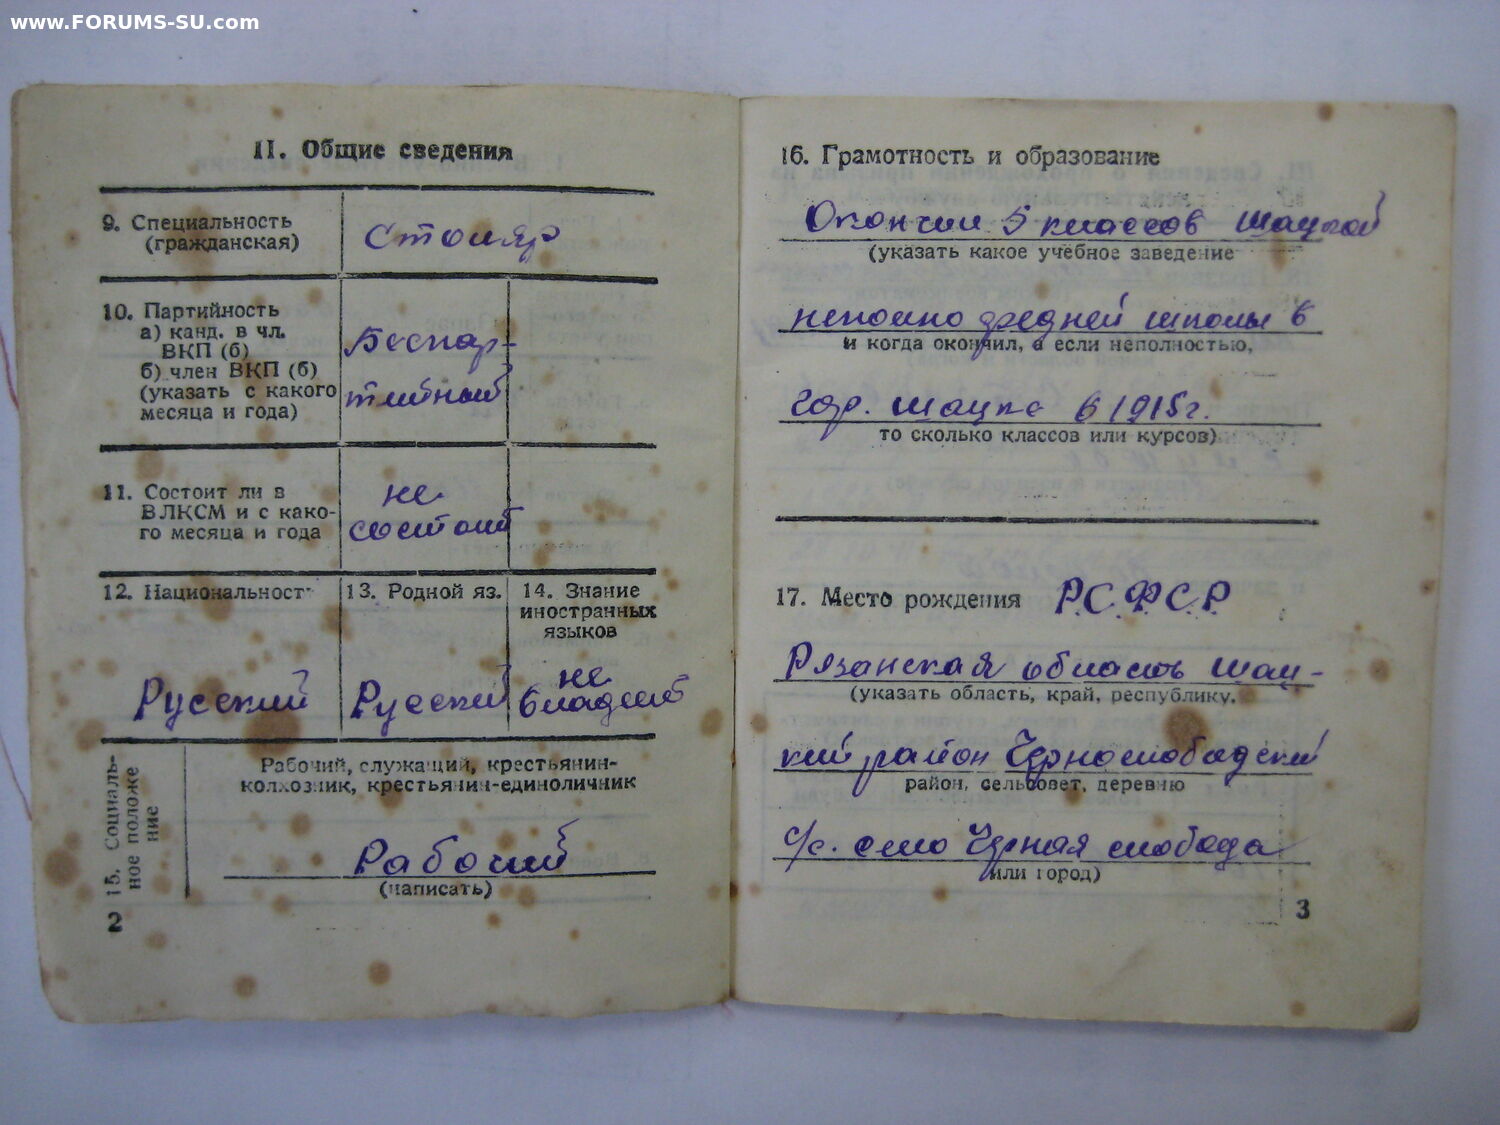 www.FORUMS-SU.com
II. Общие сведения
9. Специальность
(гражданская)
Столяр
10. Партийность
а) канд. в чл.
ВКП (б)
б) член ВКП (б)
(указать с какого
месяца и года)
Беспар-
тийный
11. Состоит ли в
ВЛКСМ и с како-
го месяца и года
не
состоит
12. Национальност
Русский
13. Родной яз.
Русский
14. Знание
иностранных
языков
не
владеет
15. Социаль-
ное положе
ние
Рабочий, служащий, крестьянин-
колхозник, крестьянин-единоличник
Рабочий
(написать)
2
16. Грамотность и образование
Окончил 5 классов Шацкой
(указать какое учебное заведение
неполно средней школы в
и когда окончил, а если неполностью,
гор. Шацке в 1915г.
то сколько классов или курсов)
17. Место рождения Р.С.Ф.С.Р.
Рязанская область Шац-
(указать область, край, республику,
кий район Чернослободский
район, сельсовет, деревню
с/с. село Черная слобода
или город)
3